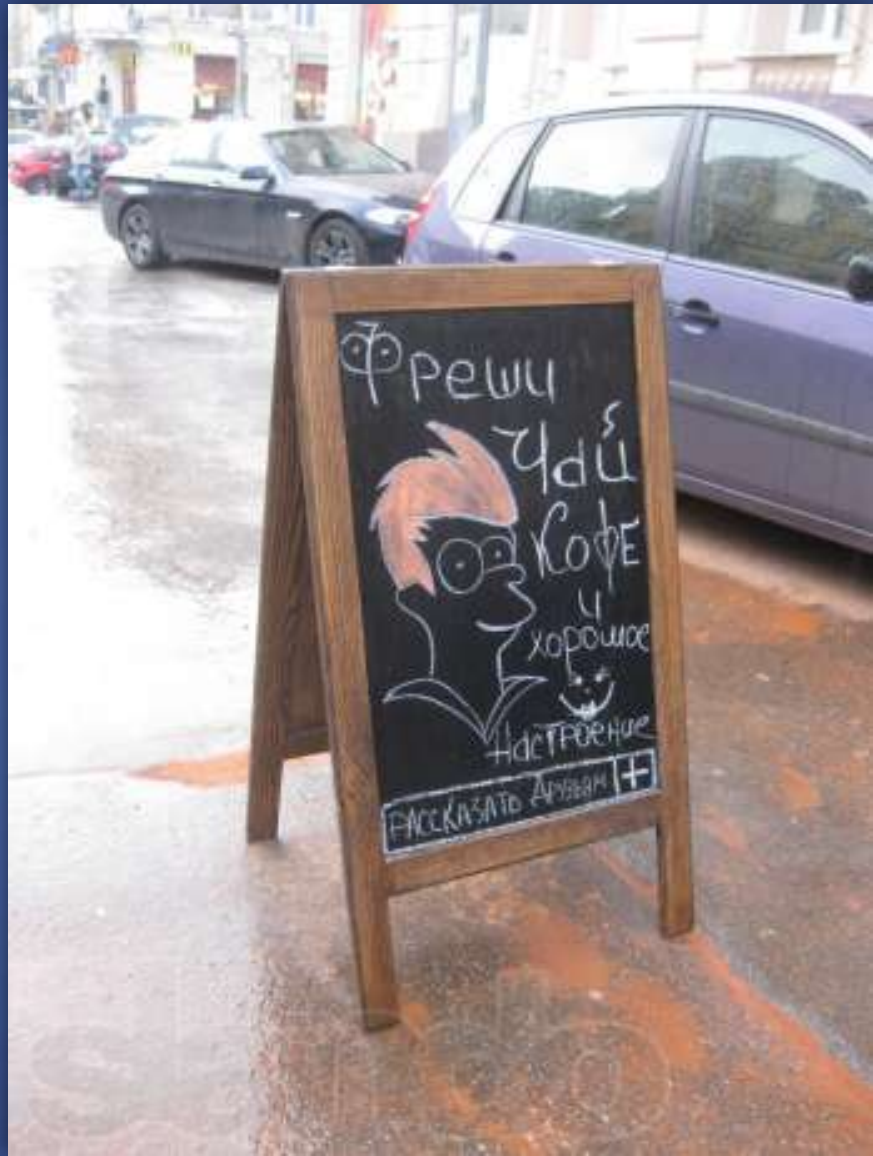 Фреши
Чай
Кофе
и
хорошое
настроение
РАССКАЗАТЬ ДРУЗЬЯМ +